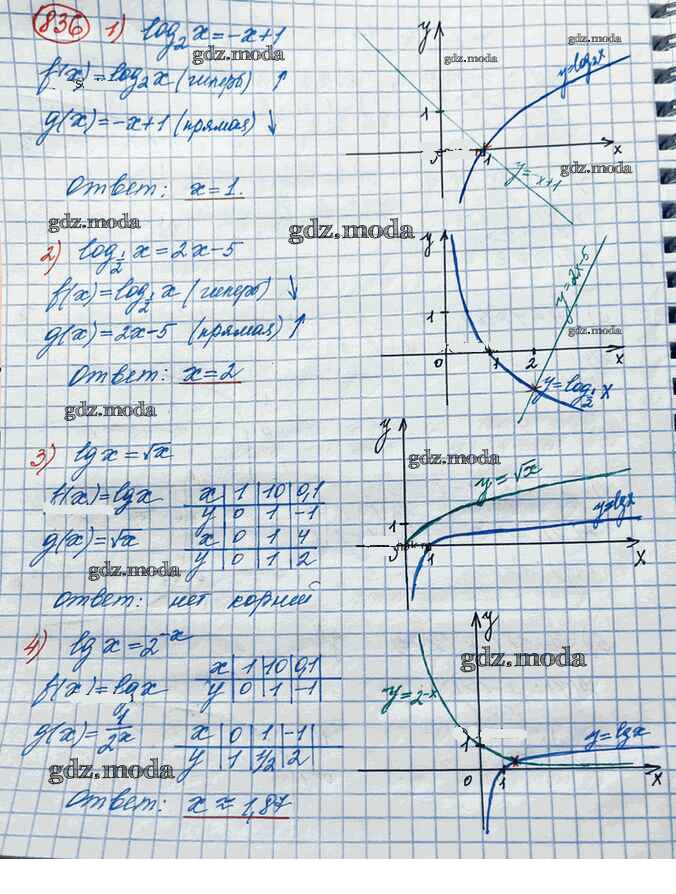 836 1) log₂x = -x+1
f(x) = log₂x (гиперб) ↑
g(x) = -x+1 (прямая) ↓
Ответ: x = 1.
y
gdz.moda
gdz.moda
y=log₂x
1
0
1
x
y=-x+1
gdz.moda
gdz.moda
gdz.moda
2) log₁/₂ x = 2x-5
f(x) = log₁/₂ x (гиперб) ↓
g(x) = 2x-5 (прямая) ↑
Ответ: x = 2
gdz.moda
y
y=2x-5
1
gdz.moda
0
1
2
x
y=log₁/₂ x
3) lg x = √x
f(x) = lg x
x | 1 | 10 | 0,1
y | 0 | 1 | -1
g(x) = √x
x | 0 | 1 | 4
y | 0 | 1 | 2
gdz.moda
Ответ: нет корней
y
gdz.moda
y=√x
y=lgx
1
1
x
4) lg x = 2⁻ˣ
f(x) = lgx
x | 1 | 10 | 0,1
y | 0 | 1 | -1
g(x) = 1/2ˣ
x | 0 | 1 | -1
y | 1 | 1/2 | 2
gdz.moda
Ответ: x ≈ 1,87
y
gdz.moda
y=2⁻ˣ
1
y=lgx
0
1
x
gdz.moda